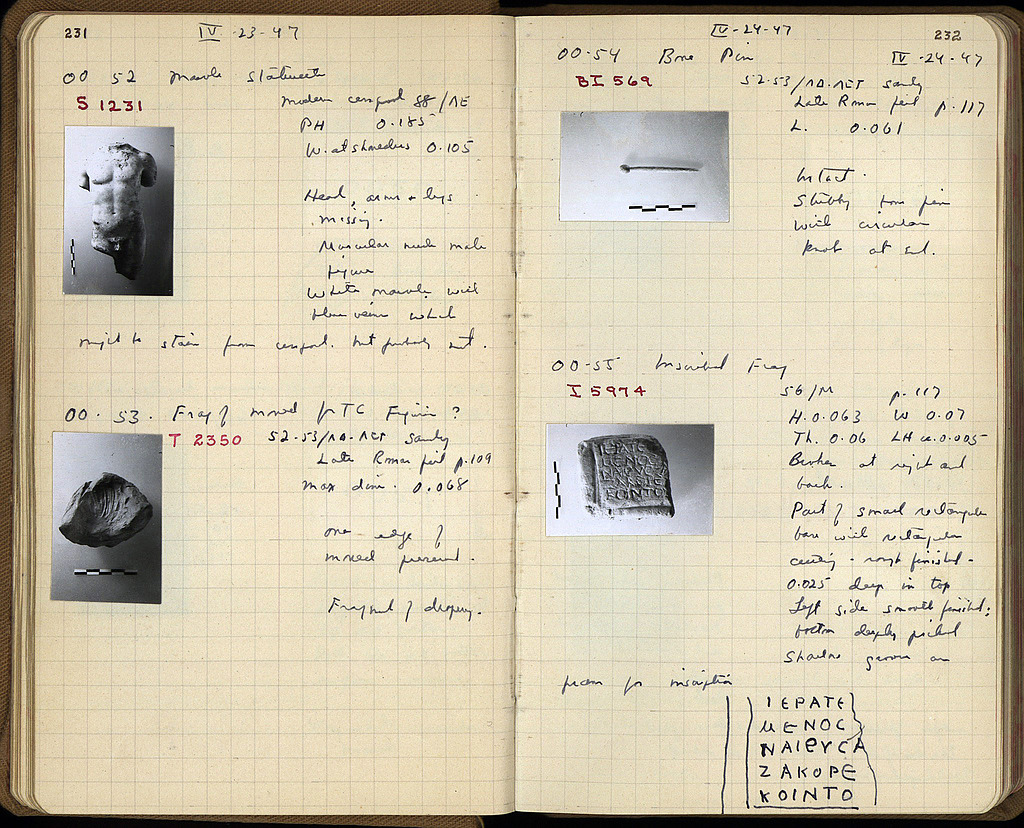 231
IV-23-47
OO 52 Marble Statuette
S 1231
Modern cesspool 88/ΛΕ
PH 0.185
W. at shoulders 0.105
Head, arms + legs
missing.
Muscular nude male
figure
White marble with
blue veins which
might be stain from cesspool. but probably not.
OO. 53. Frag of mould for TC Figurine ?
T 2350
52-53/ΛΔ-ΛΣΤ Sandy
Late Roman fill p.109
Max dim. 0.068
One edge of
mould preserved.
Fragment of drapery.
232
IV-24-47
OO-54 Bone Pin
IV-24-47
BI 569
52-53/ΛΔ-ΛΣΤ Sandy
Late Roman fill p.117
L. 0.061
Intact.
Stubby bone pin
with circular
knob at end.
OO-55 Inscribed Frag
I 5974
56/Μ p.117
H. 0.063 W 0.07
Th. 0.06 LH ca. 0.005
Broken at right and
back.
Part of small rectangular
base with rectangular
cutting - rough finished -
0.025 deep in top
Left side smooth finished;
bottom deeply picked
Shallow groove on
for inscription
ΙΕΡΑΤΕ
ΜΕΝΟϹ
ΝΑΙΕΥϹΑ
ΖΑΚΟΡΕ
ΚΟΙΝΤΟ